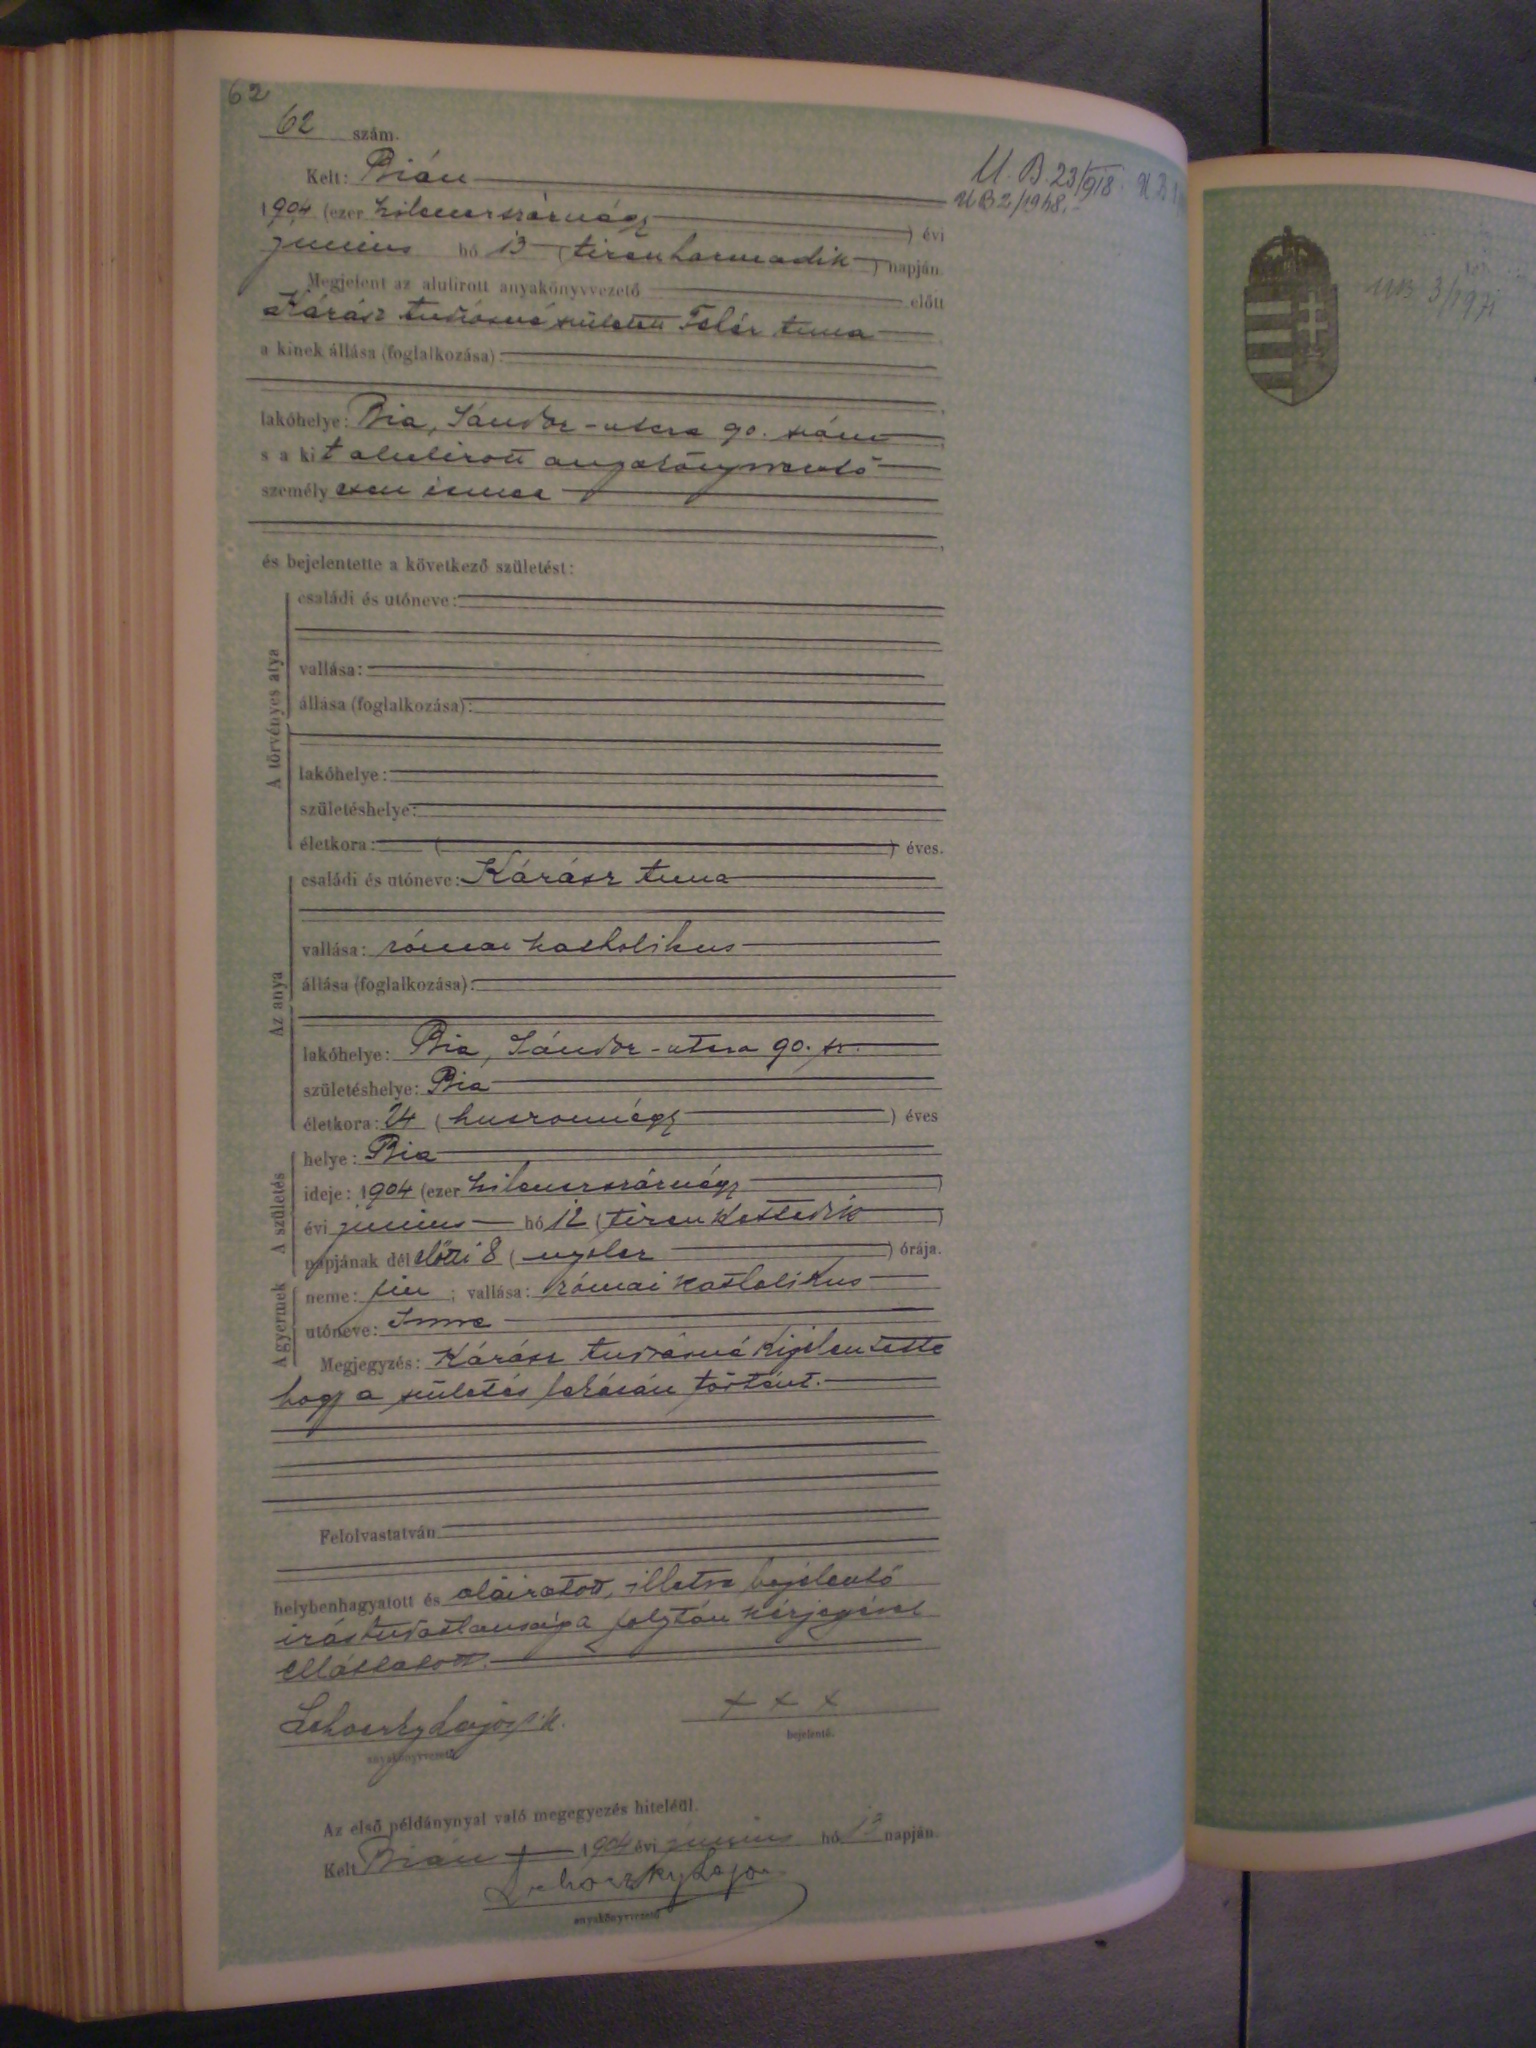 62
62 szám.
Kelt: Bián
1904 (ezer kilenczszáznégy) évi
junius hó 13 (tizenharmadik) napján
Megjelent az alulirott anyakönyvvezető előtt
Kárász Andrásné született Fehér Anna
a kinek állása (foglalkozása):
lakóhelye: Bia, Sándor-utcza 90. szám
s a kit alulirott anyakönyvvezető
személyesen ismer
és bejelentette a következő születést:
A törvényes atya
családi és utóneve:
vallása:
állása (foglalkozása):
lakóhelye:
születéshelye:
életkora: ( ) éves.
Az anya
családi és utóneve: Kárász Anna
vallása: római katholikus
állása (foglalkozása):
lakóhelye: Bia, Sándor-utcza 90. sz.
születéshelye: Bia
életkora: 24 (huszonnégy) éves
A születés
helye: Bia
ideje: 1904 (ezer kilenczszáznégy)
évi junius hó 12 (tizenkettedik)
napjának délelőtti 8 (nyolcz) órája.
A gyermek
neme: fiu; vallása: római katholikus
utóneve: Imre
Megjegyzés: Kárász Andrásné kijelentette
hogy a születés lakásán történt.
Felolvastatván
helybenhagyatott és aláiratott, illetve bejelentő
irástudatlansága folytán kézjegyével
elláttatott.
Lehoczky Lajos s.k.
anyakönyvvezető
+ + +
bejelentő.
Az első példánynyal való megegyezés hiteléül.
Kelt Bián 1904 évi junius hó 13 napján
Lehoczky Lajos
anyakönyvvezető
U. B. 23/918. U. B.
U B 2/1948.
UB 3/1971